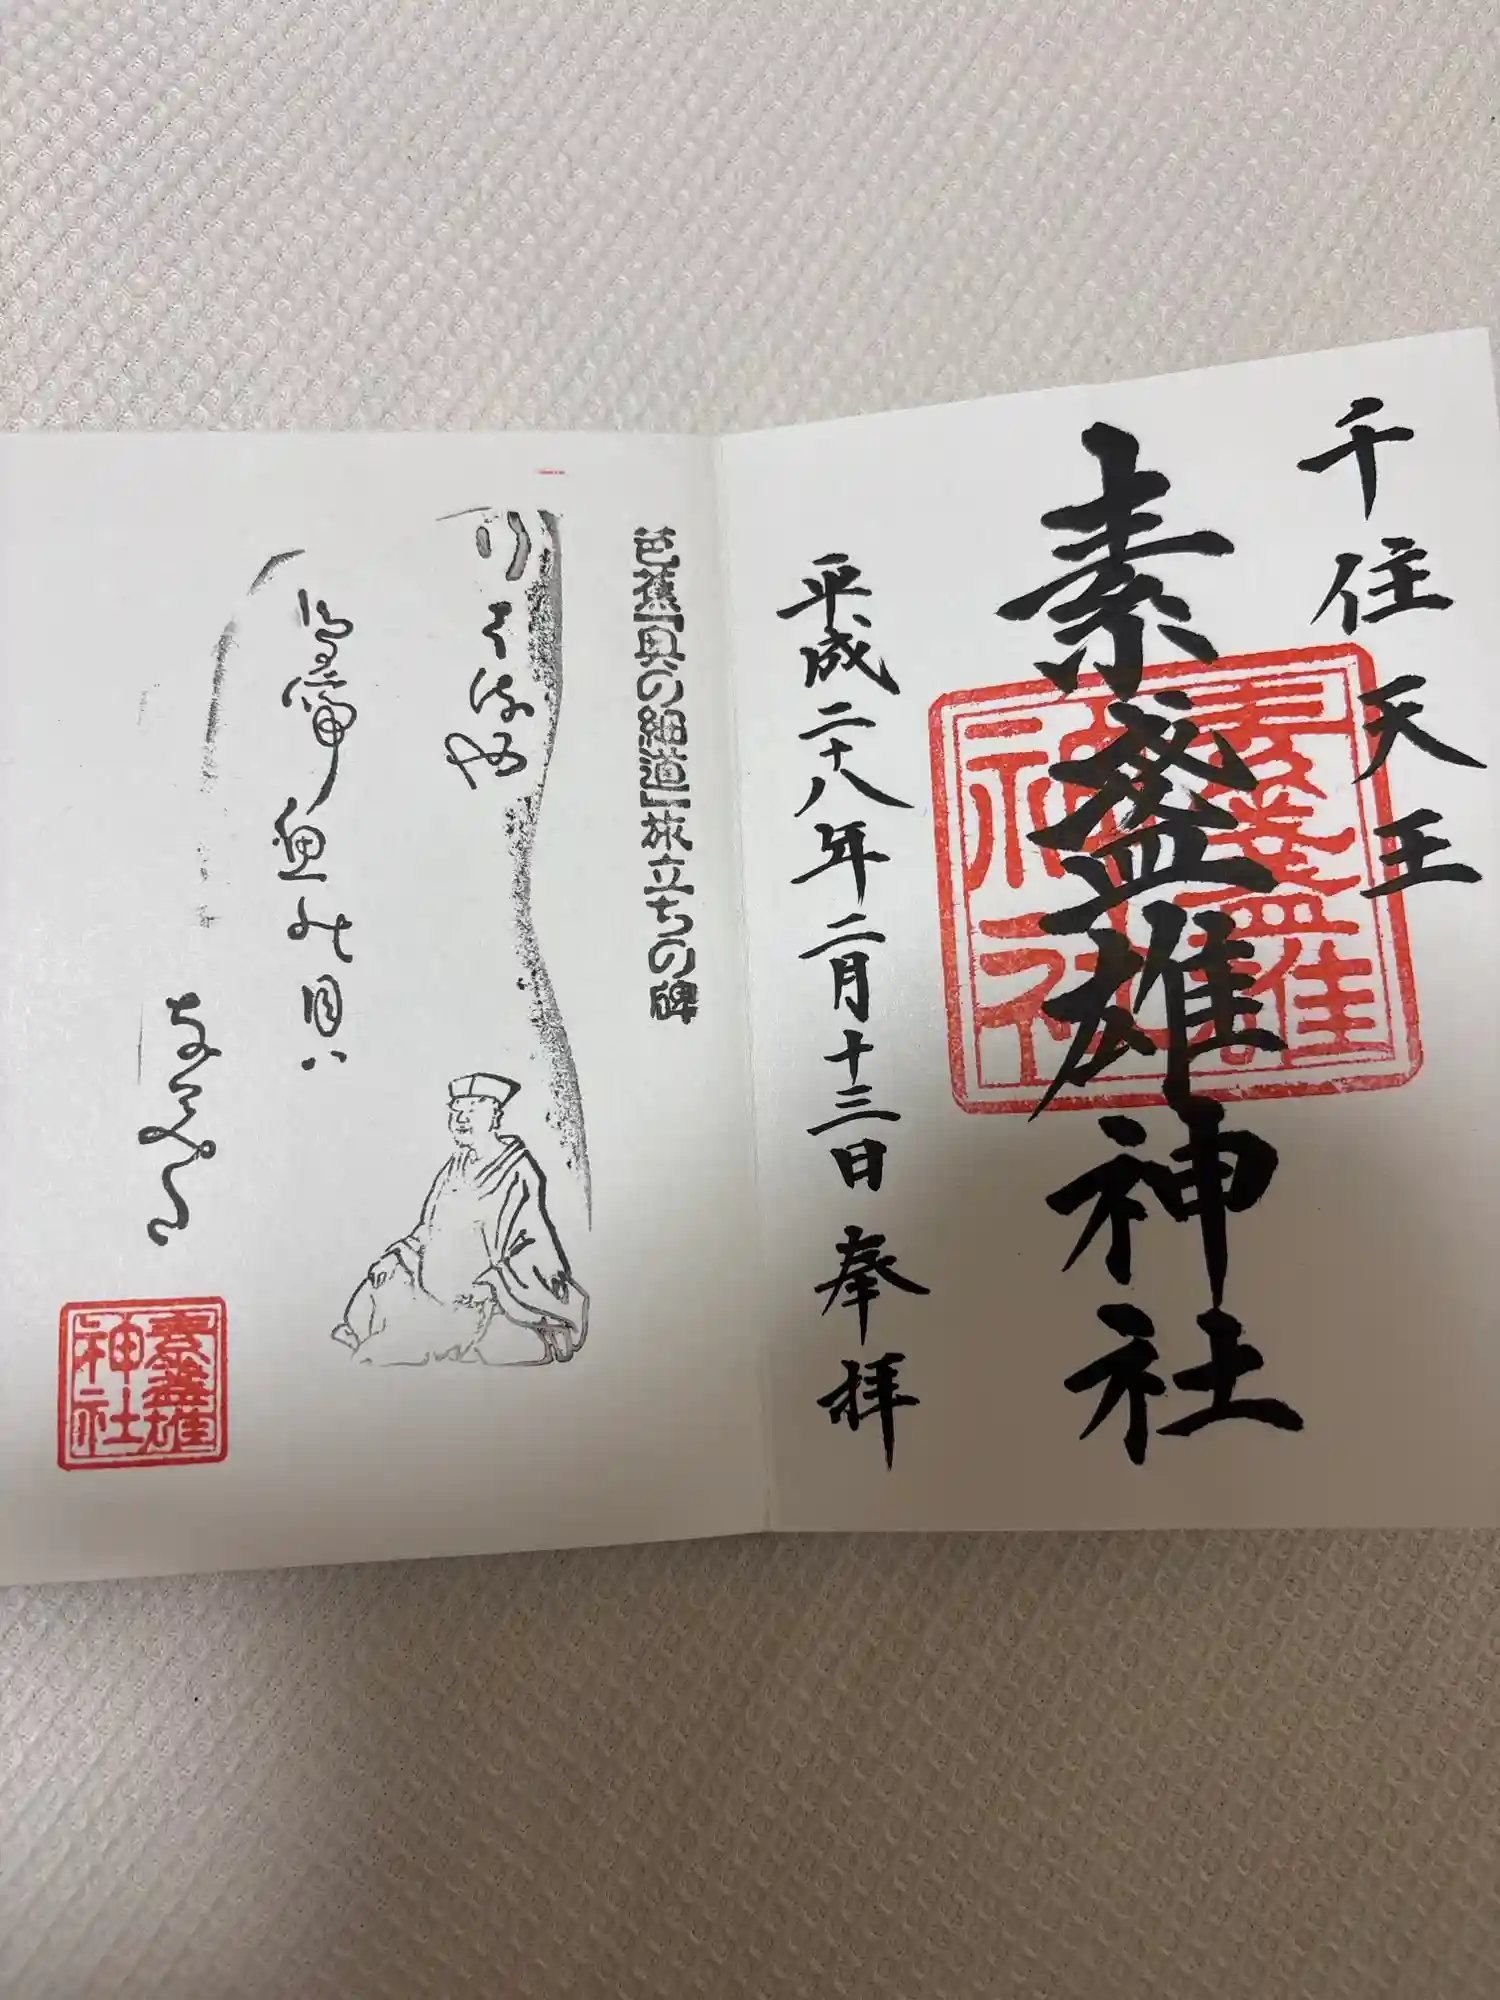 千住天王
素盞雄神社
素盞雄神社
平成二十八年二月十三日 奉拝
芭蕉「奥の細道」旅立ちの碑
行はるや
鳥啼魚の目ハ
なみた
素盞雄神社